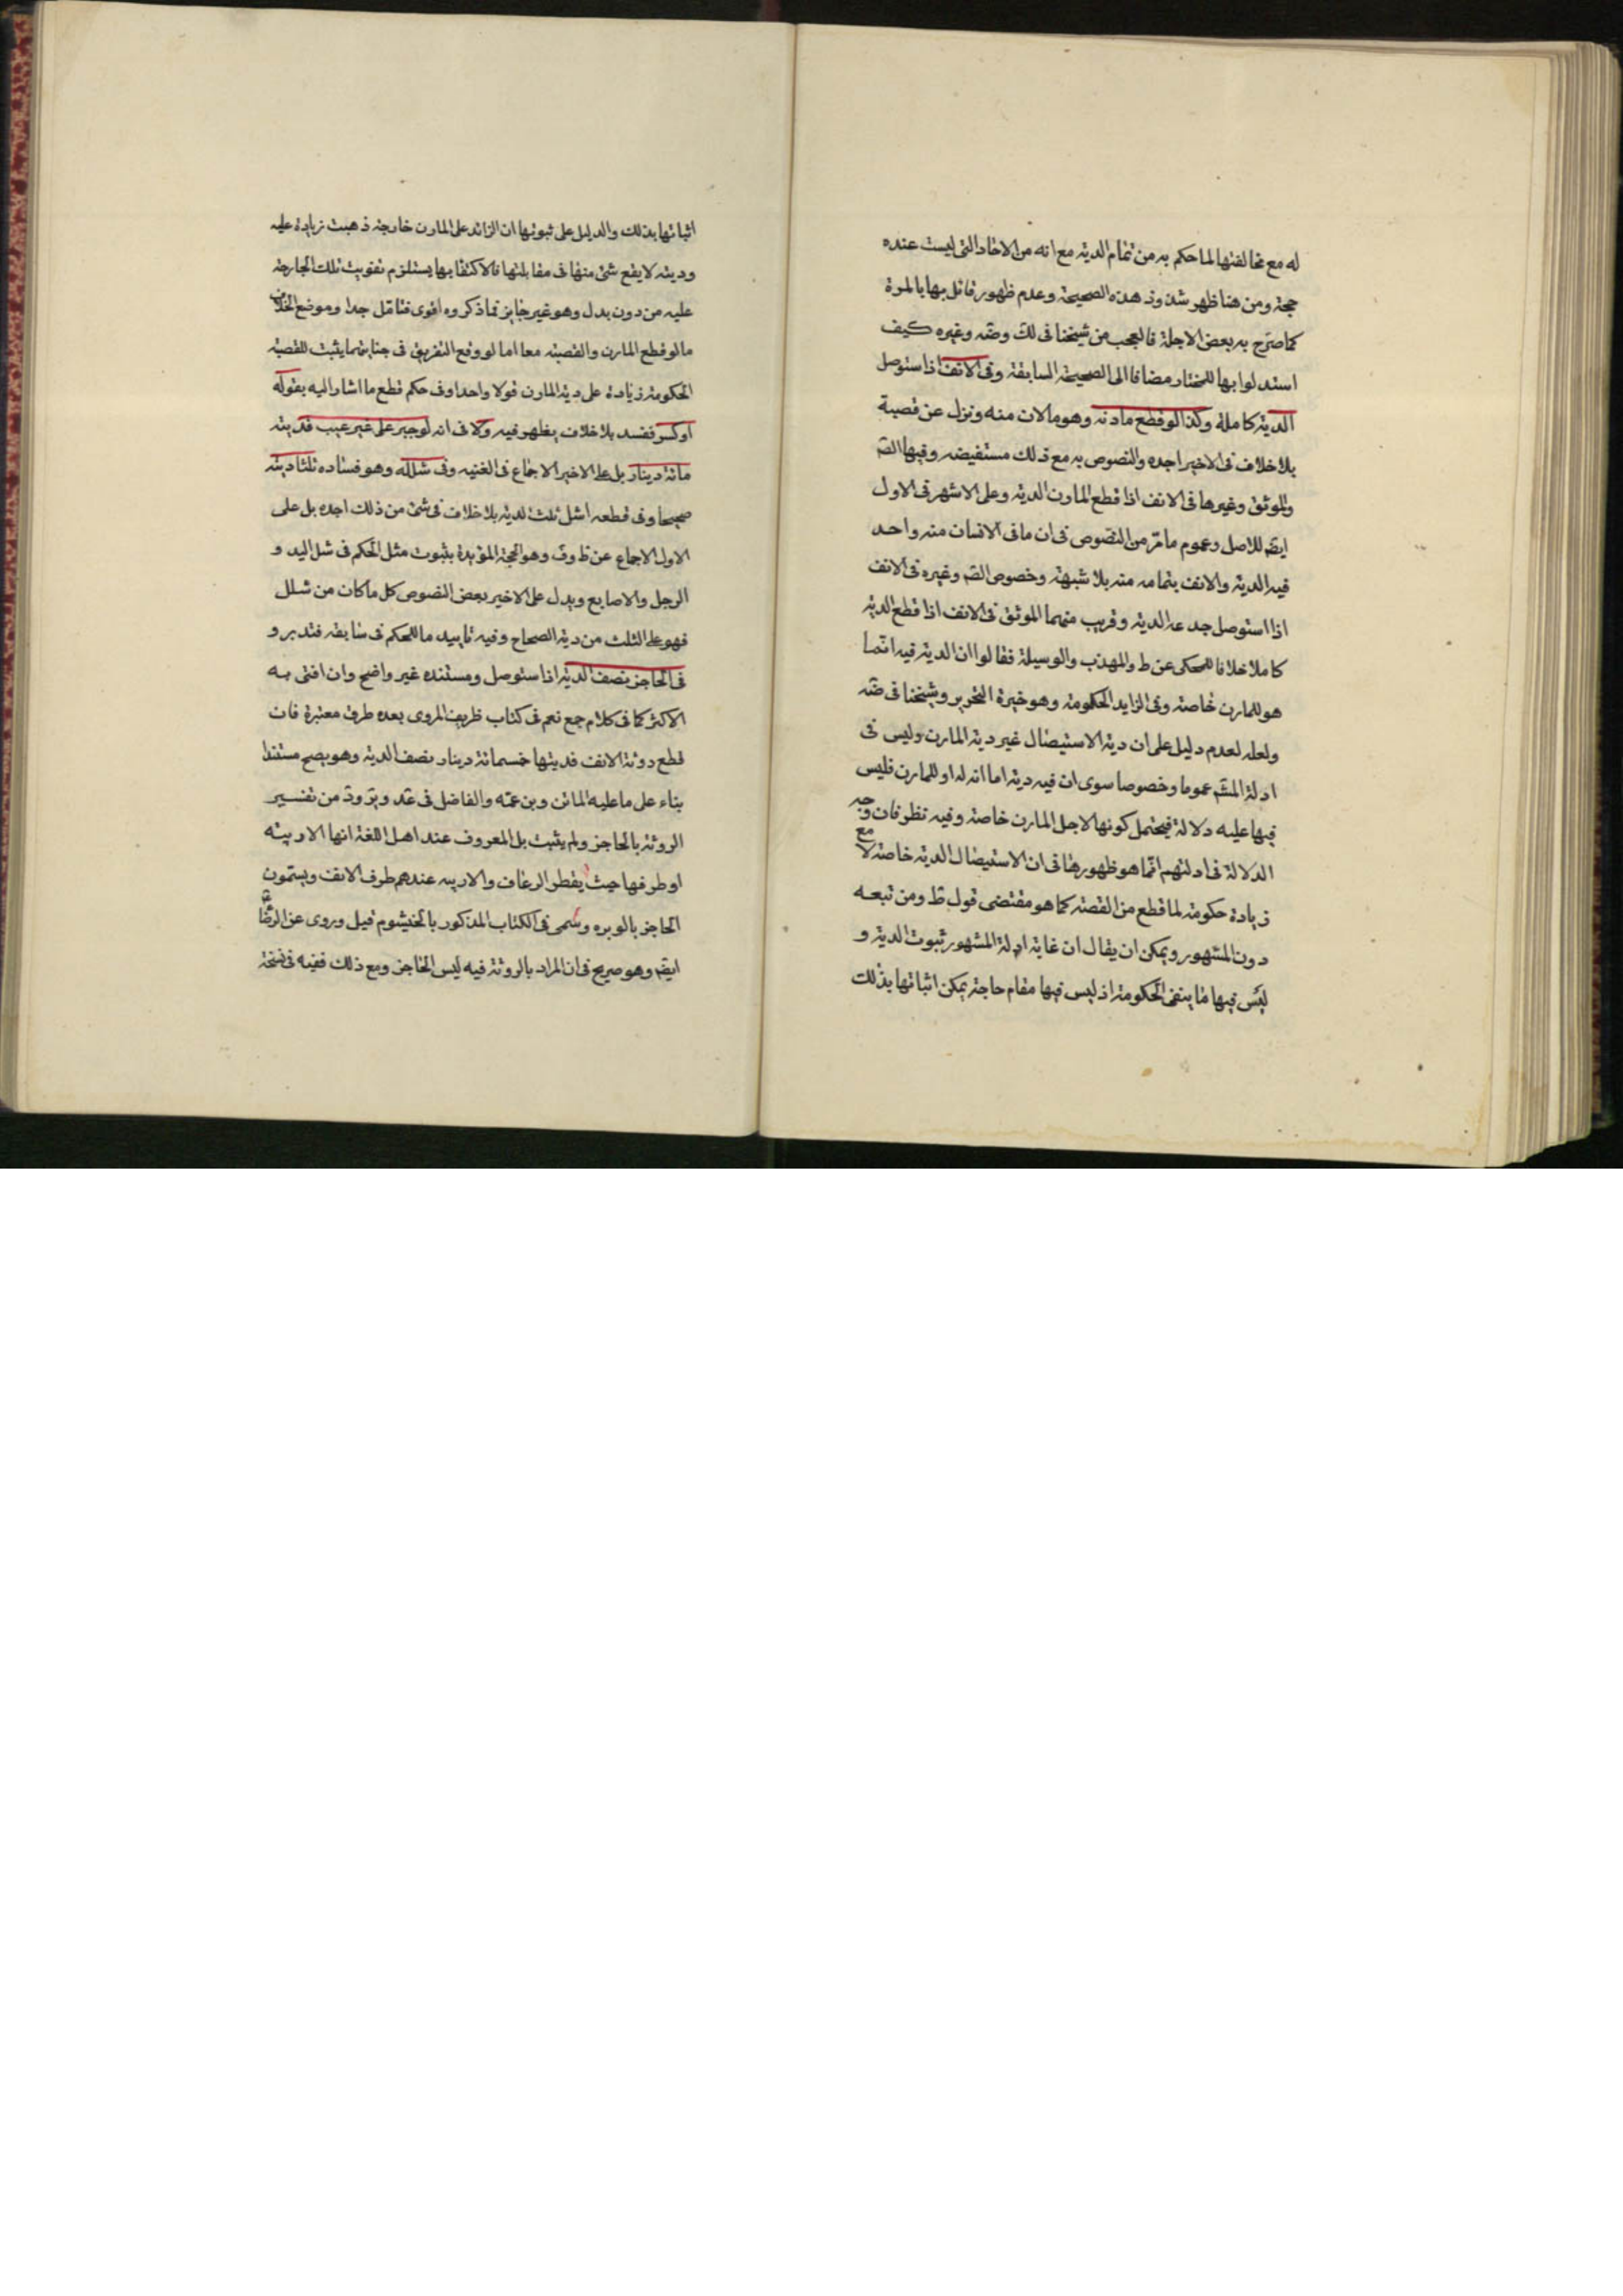 له مع مخالفتها لما حكم به من تمام الدية مع انه من الاحاد التى ليست عنده
حجة ومن هنا ظهر شذوذ هذه الصحيحة وعدم ظهور قائل بها بالمرة
كما صرّح به بعض الاجلة فالعجب من شيخنا فى لك وضه وغيره كيف
استدلوا بها للمختار مضافا الى الصحيحة السابقة وفى الانف اذا استوصل
الدية كاملة وكذا لو قطع مارنه وهو مالان منه ونزل عن قصبة
بلا خلاف فى الاخير اجده والنصوص به مع ذلك مستفيضه وفيها الصّ
والموثق وغيرها فى الانف اذا قطع المارن الدية وعلى الاشهر فى الاول
ايضم للاصل وعموم ما مرّ من النصوص فى ان ما فى الانسان منه واحد
فيه الدية والانف بتمامه منه بلا شبهة وخصوص الصّ وغيره فى الانف
اذا استوصل جدعه الدية وقريب منهما الموثق فى الانف اذا قطع الدية
كاملا خلافا للمحكى عن ط والمهذب والوسيلة فقالوا ان الدية فيه انّما
هو للمارن خاصة وفى الزايد الحكومة وهو خيرة التحرير وشيخنا فى ضه
ولعله لعدم دليل على ان دية الاستيصال غير دية المارن وليس فى
ادلة المشّم عموما وخصوصا سوى ان فيه دية اما انه له او للمارن فليس
فيها عليه دلالة فيحتمل كونها لاجل المارن خاصة وفيه نظر فان وجه
الدلالة فى ادلتهم انّما هو ظهورها فى ان الاستيصال الدية خاصة لا مع
زيادة حكومة لما قطع من القصبة كما هو مقتضى قول ط ومن تبعه
دون المشهور ويمكن ان يقال ان غاية ادلة المشهور ثبوت الدية و
ليس فيها ما ينفى الحكومة اذ ليس فيها مقام حاجة يمكن اثباتها بذلك
اثباتها بذلك والدليل على ثبوتها ان الزائد على المارن خارجة ذهبت زيادة عليه
ودية لا يقع شئ منها فى مقابلتها فالاكتفا بها يستلزم تفويت تلك الجارحة
عليه من دون بدل وهو غير جايز مما ذكروه اقوى فتامّل جدا وموضع الخلاف
ما لو قطع المارن والقصبة معا اما لو وقع التفريق فى جنايتهما يثبت للقصبة
الحكومة زيادة على دية المارن قولا واحدا وفى حكم قطع ما اشار اليه بقوله
او كسر ففسد بلا خلاف يظهر فيه ولا فى انه لو جبر على غير عيب فديته
مائة دينار بل على الاخير الاجماع فى الغنيه وفى شلله وهو فساده ثلثا ديته
صحيحا وفى قطعه اشل ثلث الدية بلا خلاف فى شئ من ذلك اجده بل على
الاول الاجماع عن ط وف وهو الحجة المؤيدة بثبوت مثل الحكم فى شل اليد و
الرجل والاصابع ويدل على الاخير بعض النصوص كل ما كان من شلل
فهو على الثلث من دية الصحاح وفيه تاييد ما للحكم فى سابقه فتدبر و
فى الحاجز نصف الدية اذا ستوصل ومستنده غير واضح وان افتى به
الاكثر كما فى كلام جمع نعم فى كتاب ظريف المروى بعده طرق معتبرة فان
قطع روثة الانف فديتها خمسمائة دينار نصف الدية وهو يصح مستندا
بناء على ما عليه الماتن وبن عمّه والفاضل فى عد وير ود من تفسير
الروثة بالحاجز ولم يثبت بل المعروف عند اهل اللغة انها الارنبة
او طرفها حيث يقطر الرعاف والارنبه عندهم طرف الانف ويسمّون
الحاجز بالوبره وسمى فى الكتاب المذكور بالخيشوم قيل وروى عن الرضا
ايضم وهو صريح فى ان المراد بالروثة فيه ليس الحاجز ومع ذلك ففيه فى نسخة